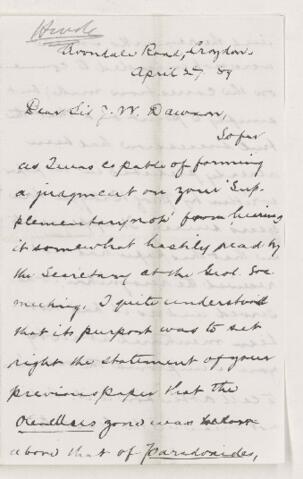 Hinde
Avondale Road, Croydon
April 27. 89
Dear Sir J. W. Dawson,
So far
as I was capable of forming
a judgment on your 'Sup-
plementary note' from hearing
it somewhat hastily read by
the Secretary at the Geol. Soc
meeting, I quite understood
that its purport was to set
right the statement of your
previous paper that the
Olenellus zone was
above that of Paradoxides,